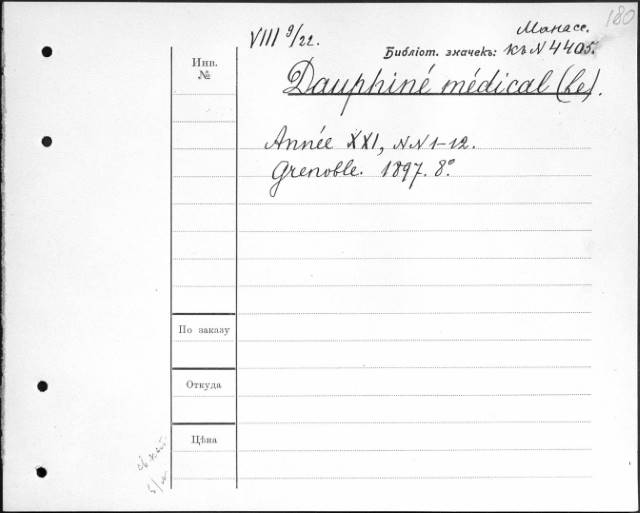 180
VIII 9/22.
Манасс.
Библіот. значекъ: къ N 4405.
Инв.
№
Dauphiné médical (Le).
Année XXI, NN 1-12.
Grenoble. 1897. 8°
По заказу
Откуда
Цѣна